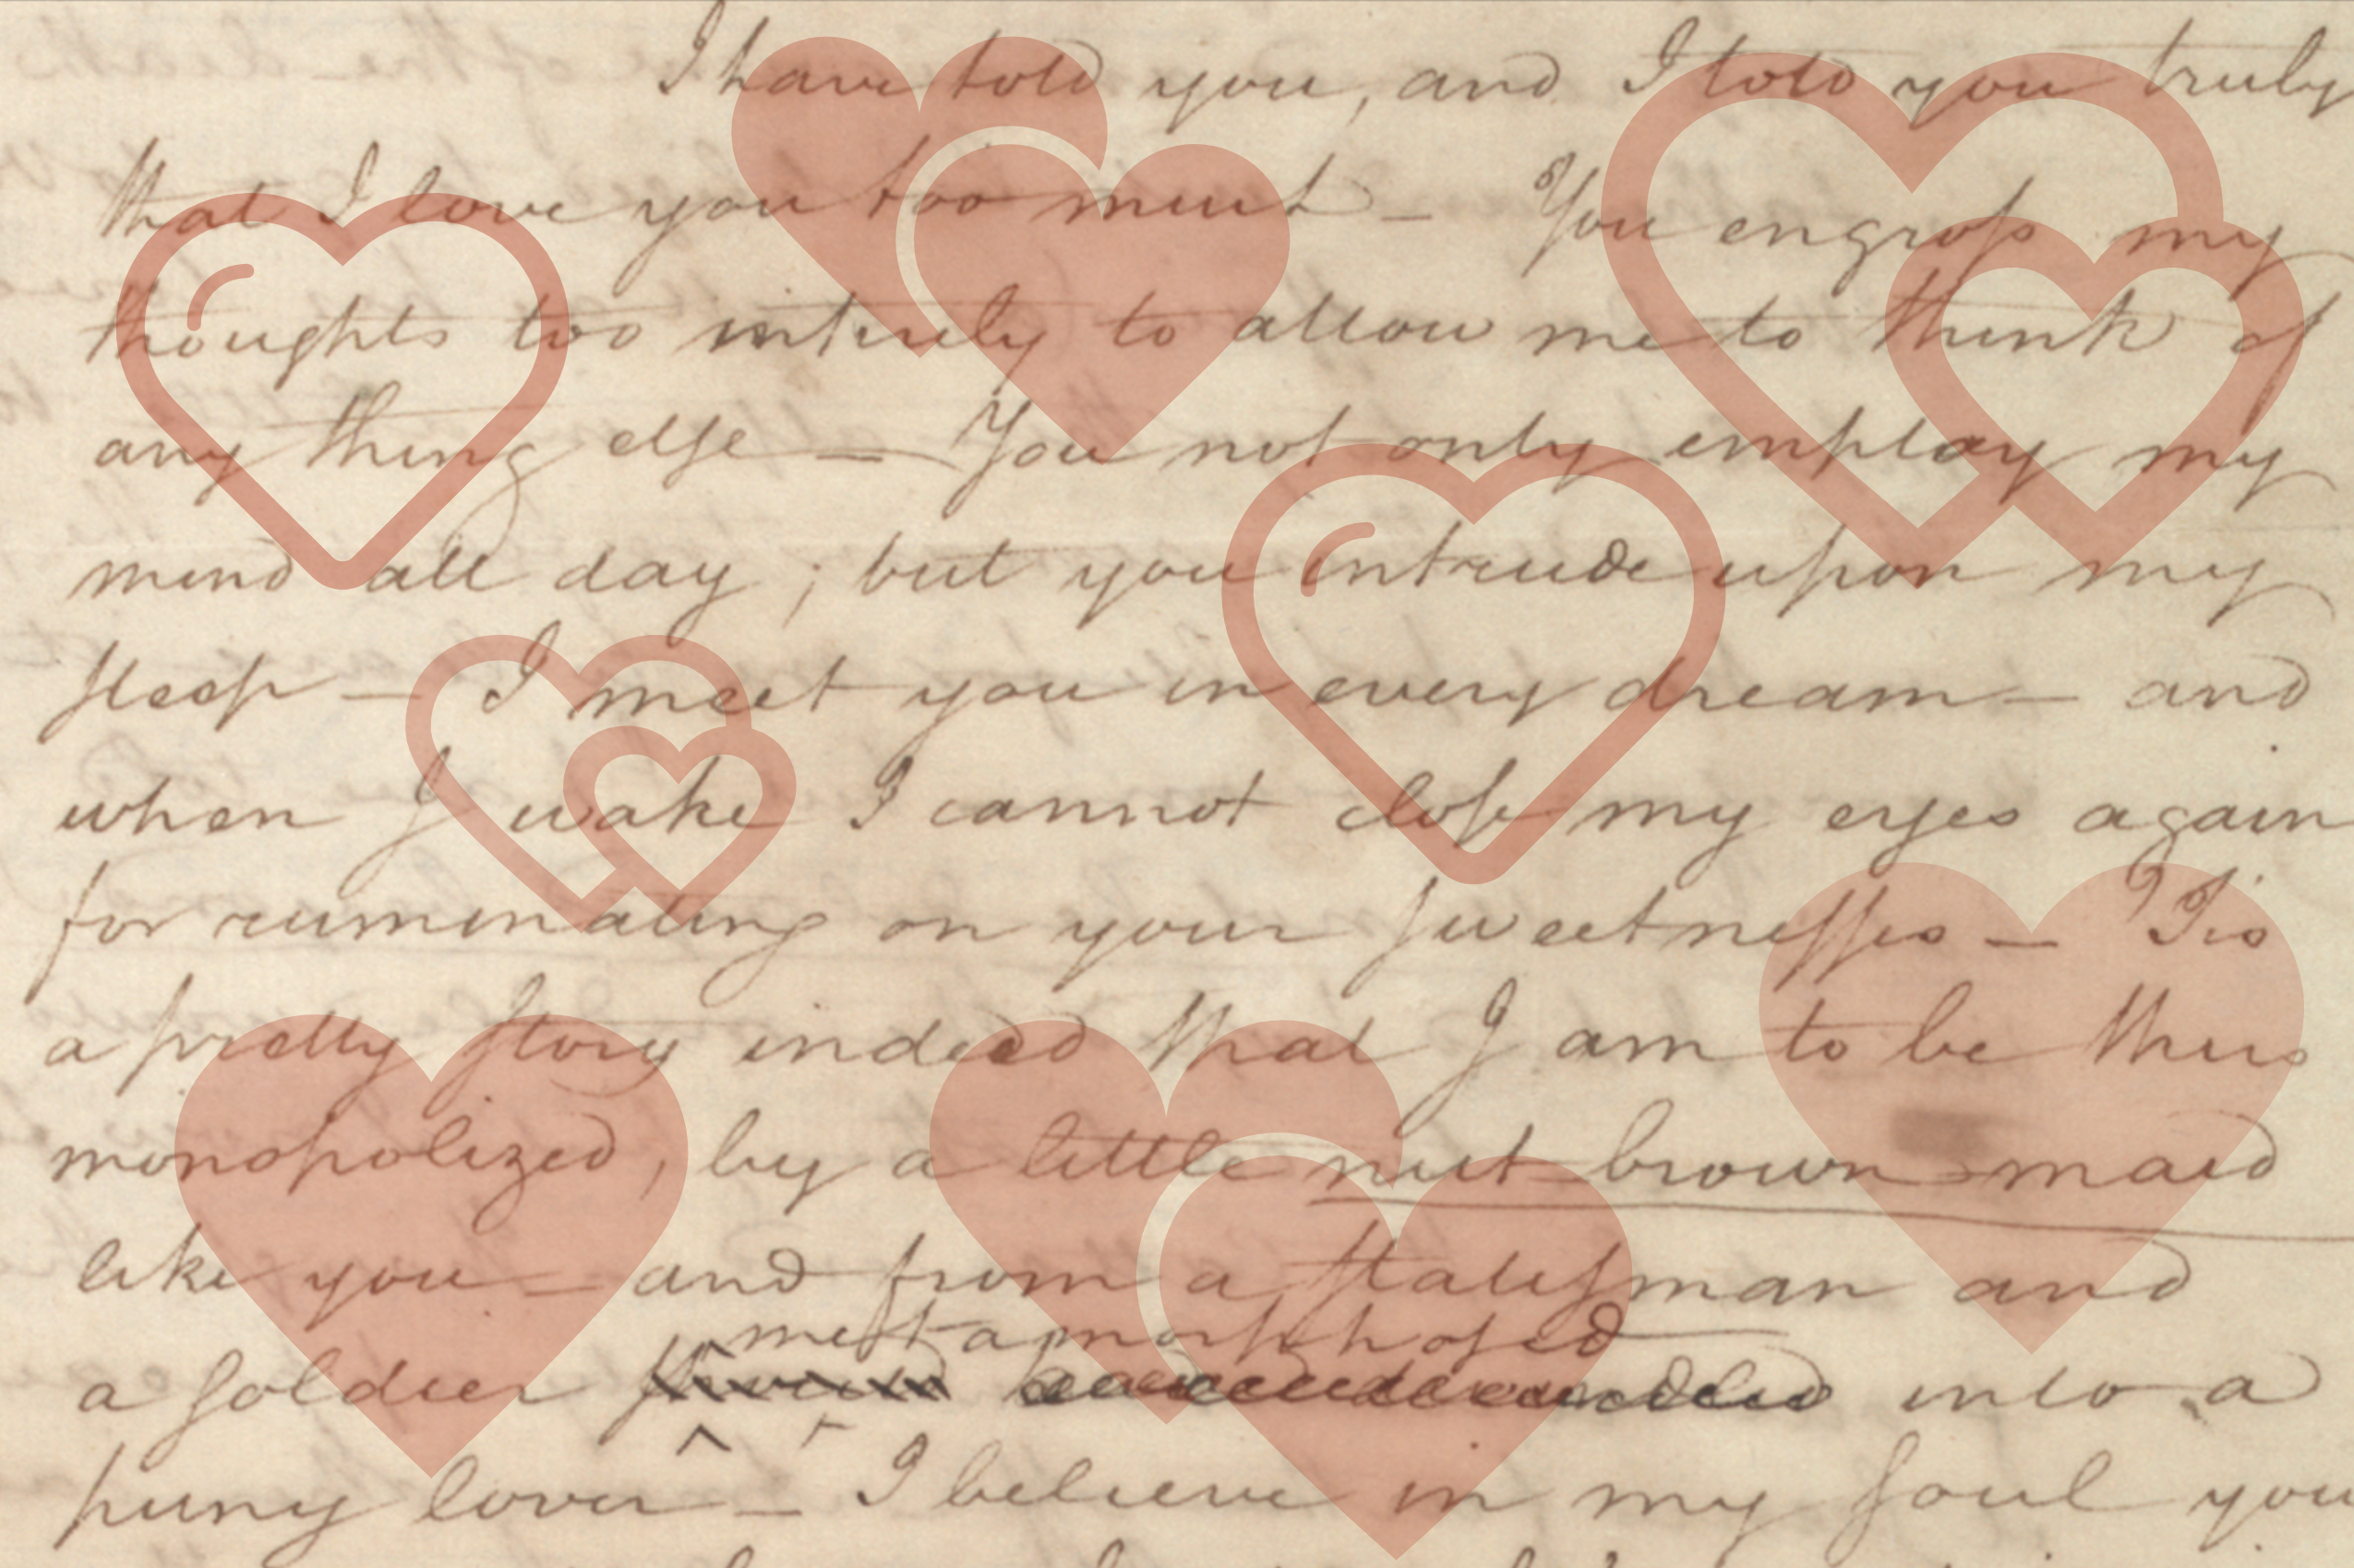 I have told you, and I told you truly
that I love you too much — You engross my
thoughts too intirely to allow me to think of
any thing else — You not only employ my
mind all day; but you intrude upon my
sleep — I meet you in every dream — and
when I wake I cannot close my eyes again
for ruminating on your sweetnesses — 'Tis
a pretty story indeed that I am to be thus
monopolized, by a little nut brown maid
like you — and from a statesman and
metamorphosed
a soldier into a
puny lover — I believe in my soul you